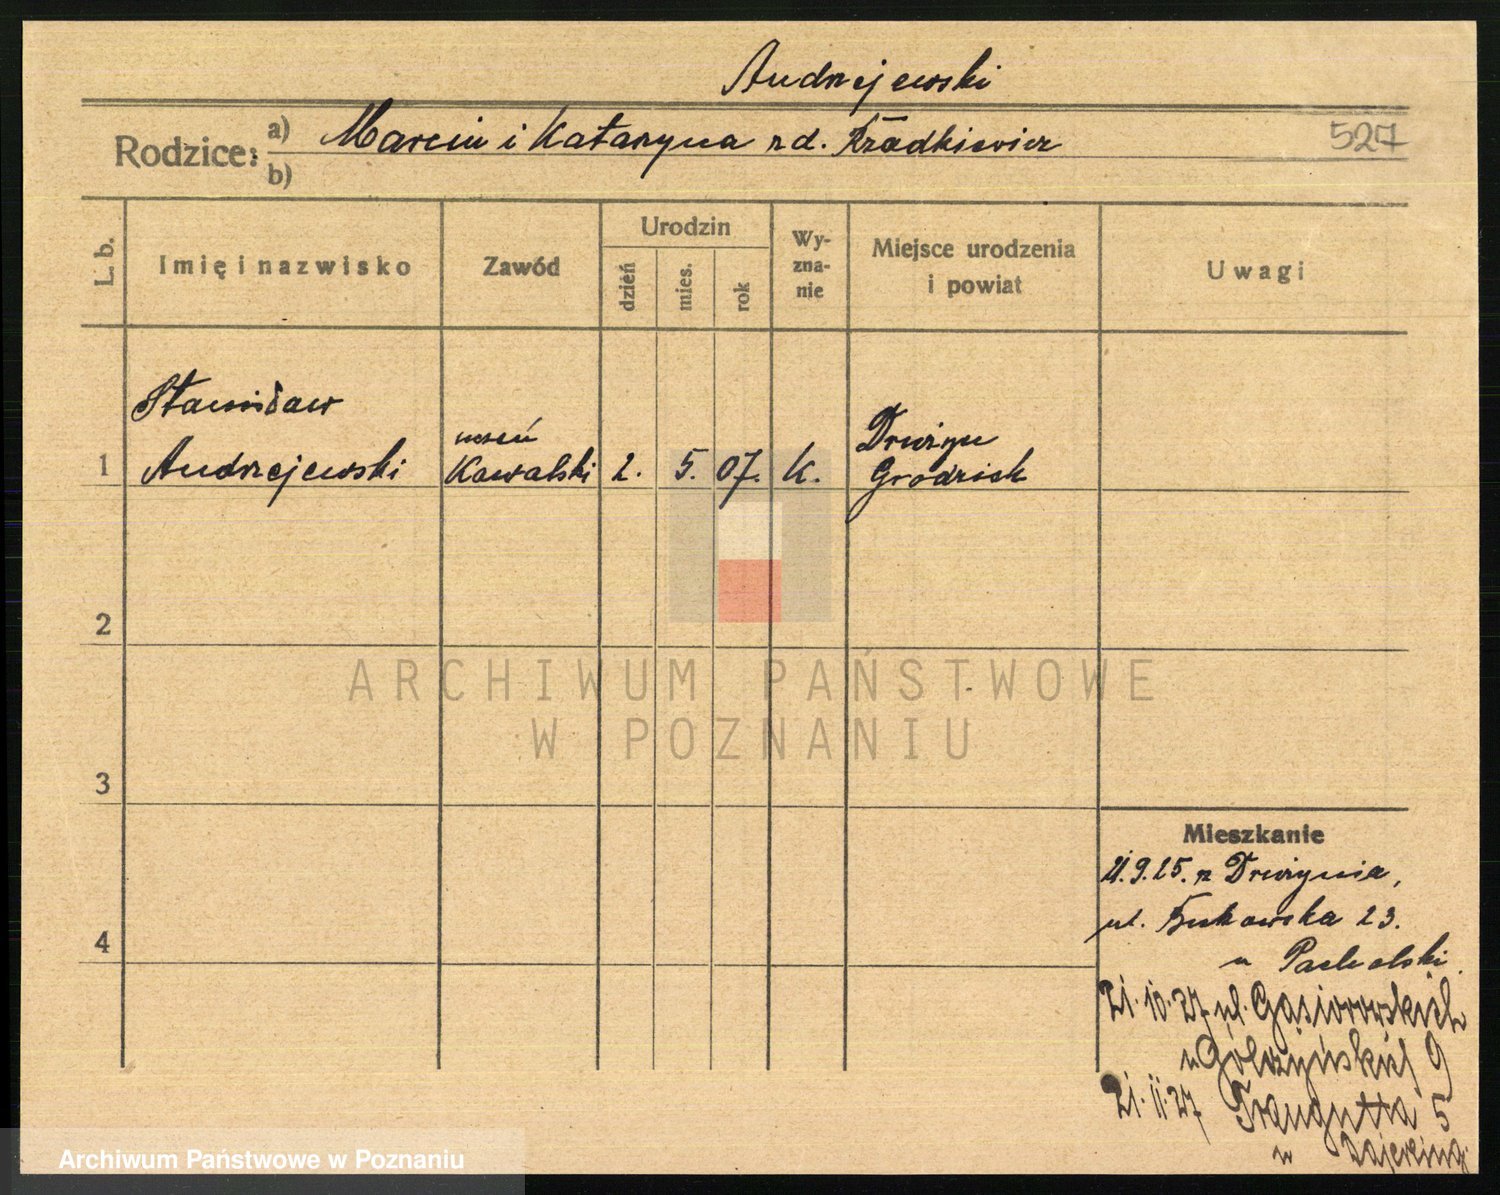 Andrzejewski
Rodzice: a) Marcin i Katarzyna rd. Kradkiewicz
527
b)
L. b.
Imię i nazwisko
Zawód
Urodzin
dzień
mies.
rok
Wy-
zna-
nie
Miejsce urodzenia
i powiat
Uwagi
Stanisław
uczeń
Drużyn
1 Andrzejewski Kowalski 2. 5. 07. k. Grodzisk
2
ARCHIWUM PAŃSTWOWE
W POZNANIU
3
Mieszkanie
21.9.25. z Drużynia,
ul. Bukowska 23.
4
u Pacholski.
21.10.27 ul. Gąsiorowskich
9
21.11.27 Traugutta 5
u
Archiwum Państwowe w Poznaniu